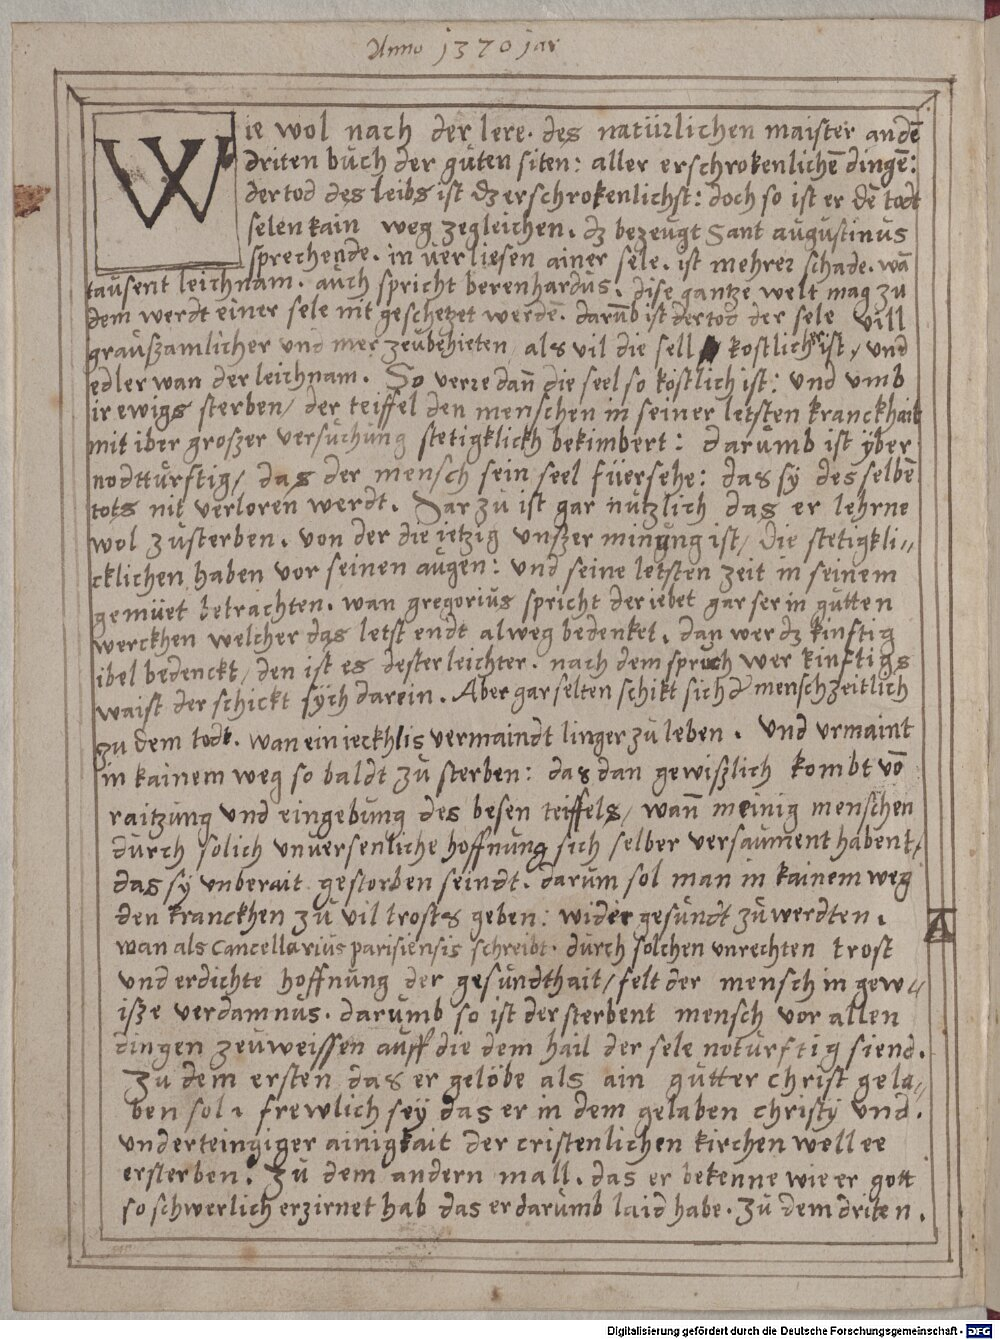 Anno 1370 jar
Wie wol nach der lere. des natürlichen maister andē
driten büch der güten siten: aller erschrokenlichē dingē:
der tod des leibs ist dz erschrokenlichst: doch so ist er dē todt
selen kain weg zegleichen. dz bezeugt Sant augüstinüs
sprechende. in verliesen ainer sele. ist mehrer schade. wā
taüsent leichnam. aüch spricht berenhardüs. dise gantze welt mag zu
dem werdt einer sele nit geschetzet werdē. darūb ist der tod der sele vill
graüßamlicher und mer zeübehieten / als vil die sell kostlicher ist / und
edler wan der leichnam. So verre dañ die seel so köstlich ist: und vmb
ir ewigs sterben / der teiffel den menschen in seiner letsten kranckhait
mit iber großer versüchüng stetigklickh bekimbert: darümb ist ÿber
nodttürftig / das der mensch sein seel füersehe: das sy des selbē
tots nit verloren werdt. Dar zü ist gar nützlich das er lehrne
wol züsterben. von der die ietzig vnßer minüng ist / die stetigkli„
cklichen haben vor seinen aügen: und seine letsten zeit in seinem
gemüet betrachten. wan gregoriüs spricht der iebet gar ser in gütten
werckhen welcher das letst endt alweg bedenket. dan wer dz kinftig
ibel bedenckt / den ist es dester leichter. nach dem sprüch wer kinftigs
waist der schickt sÿch darein. Aber gar selten schikt sich dʾ mensch zeitlich
zu dem todt. wan ein ieckhlis vermaindt linger zü leben. und vrmaint
in kainem weg so baldt zü sterben: das dan gewißlich kombt vō
raitzüng und eingebüng des besen teiffels / wañ meinig menschen
dürch solich vnversenliche hoffnüng sich selber versaüment habent /
das sy vnberait gestorben seindt. darüm sol man in kainem weg
den kranckhen zü vil trosts geben: wider gesündt züwerdten.
A
wan als Cancellariüs parisiensis schreibt. dürch solchen unrechten trost
und erdichte hoffnüng der gesündthait / felt der mensch in gew„
iße verdamnüs. darümb so ist der sterbent mensch vor allen
dingen zeüweissen aüff die dem hail der sele notürftig siend.
Zu dem ersten das er gelöbe als ain gütter christ gela„
ben sol. frewlich seÿ das er in dem gelaben christÿ und.
vnderteingiger ainigkait der cristenlichen kirchen well ee
ersterben. Zü dem andern mall. das er bekenne wie er gott
so schwerlich erzirnet hab das er darümb laid habe. Zü dem driten.
Digitalisierung gefördert durch die Deutsche Forschungsgemeinschaft - DFG